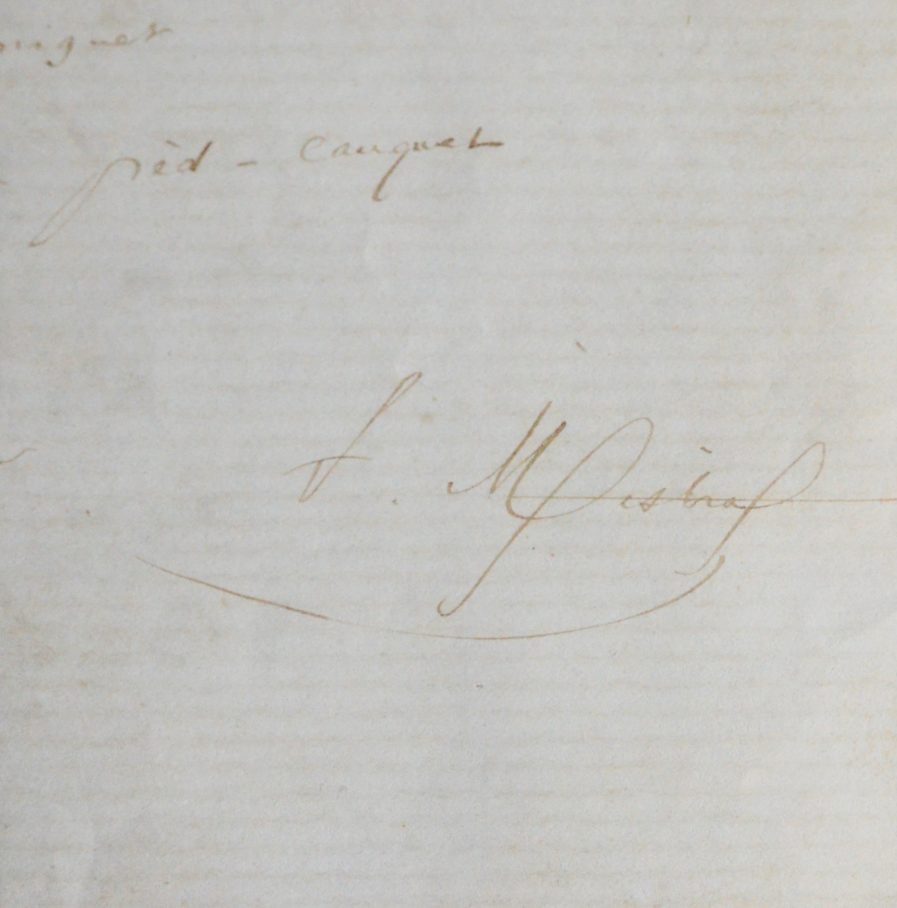 pèd - Cauquet
F. Mistral